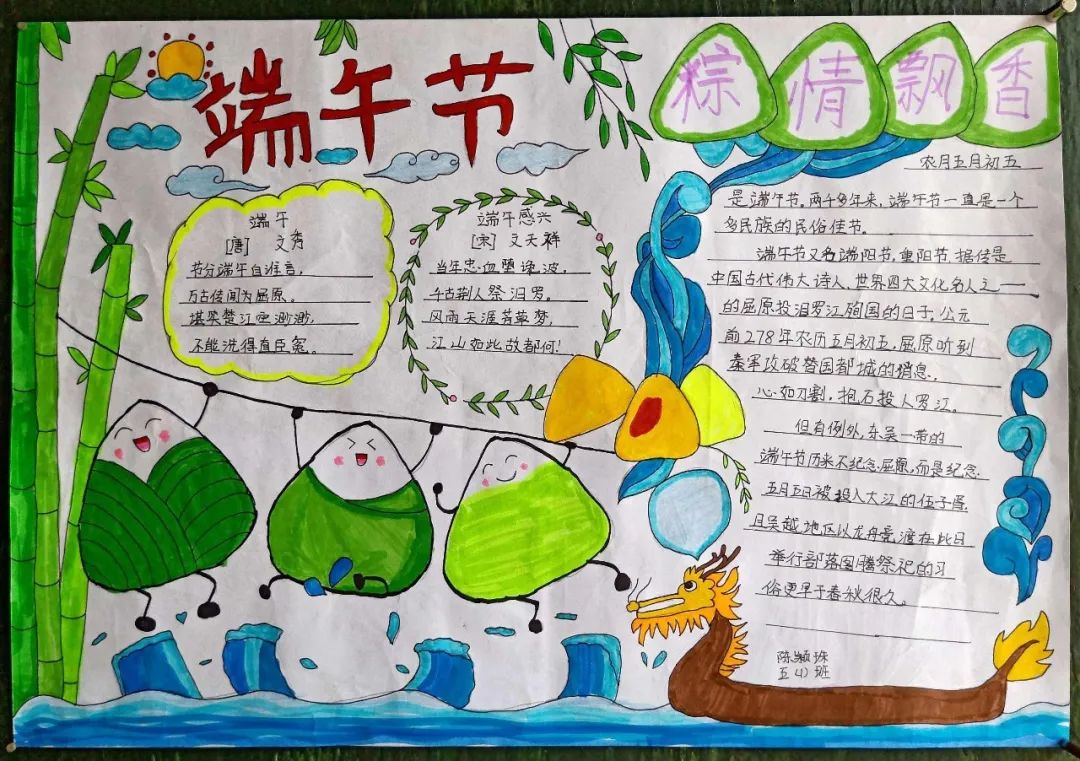 端午节
粽情飘香
端午
[唐] 文秀
节分端午自谁言,
万古传闻为屈原。
堪笑楚江空渺渺,
不能洗得直臣冤。
端午感兴
[宋] 文天祥
当年忠血堕谗波,
千古荆人祭汨罗。
风雨天涯芳草梦,
江山如此故都何!
农月五月初五
是端午节,两千多年来,端午节一直是一个
多民族的民俗佳节。
端午节又名端阳节,重阳节,据传是
中国古代伟大诗人、世界四大文化名人之一
的屈原投汨罗江殉国的日子;公元
前278年农历五月初五,屈原听到
秦军攻破替国都城的消息,
心如刀割,抱石投人罗江。
但有例外,东吴一带的
端午节历来不纪念屈原,而是纪念
五月五日被投入大江的伍子胥,
且吴越地区以龙舟竞渡在此日
举行部落图腾祭祀的习
俗更早于春秋很久。
陈颖珠
五(1)班